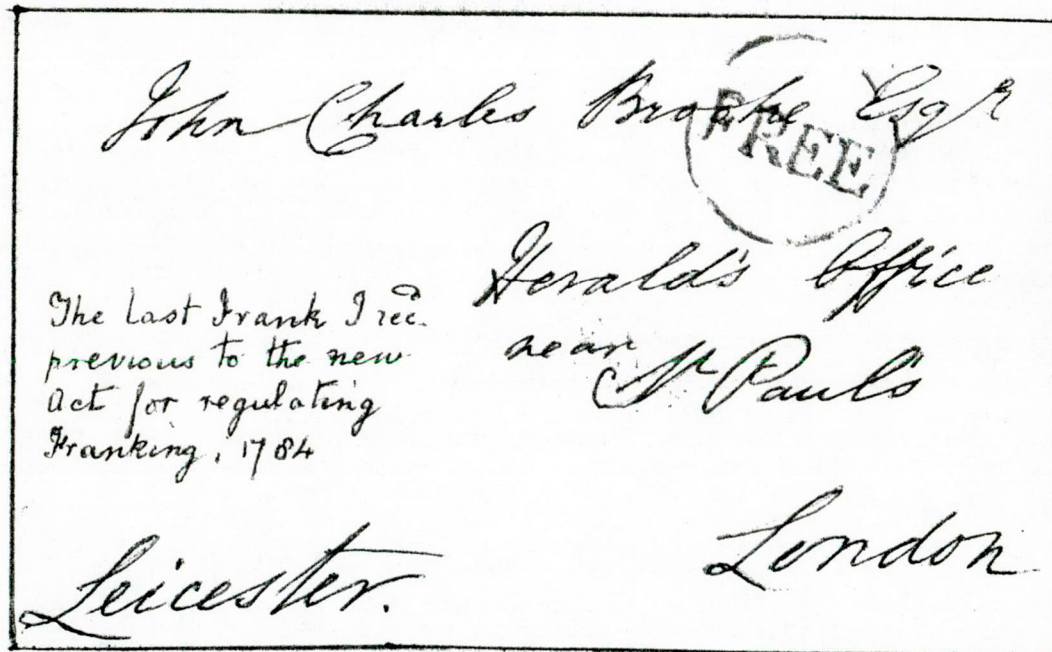 John Charles Brooke Esqr
FREE
Herald's Office
near
St Paul's
London
The last Frank I recd.
previous to the new
Act for regulating
Franking, 1784
Leicester.